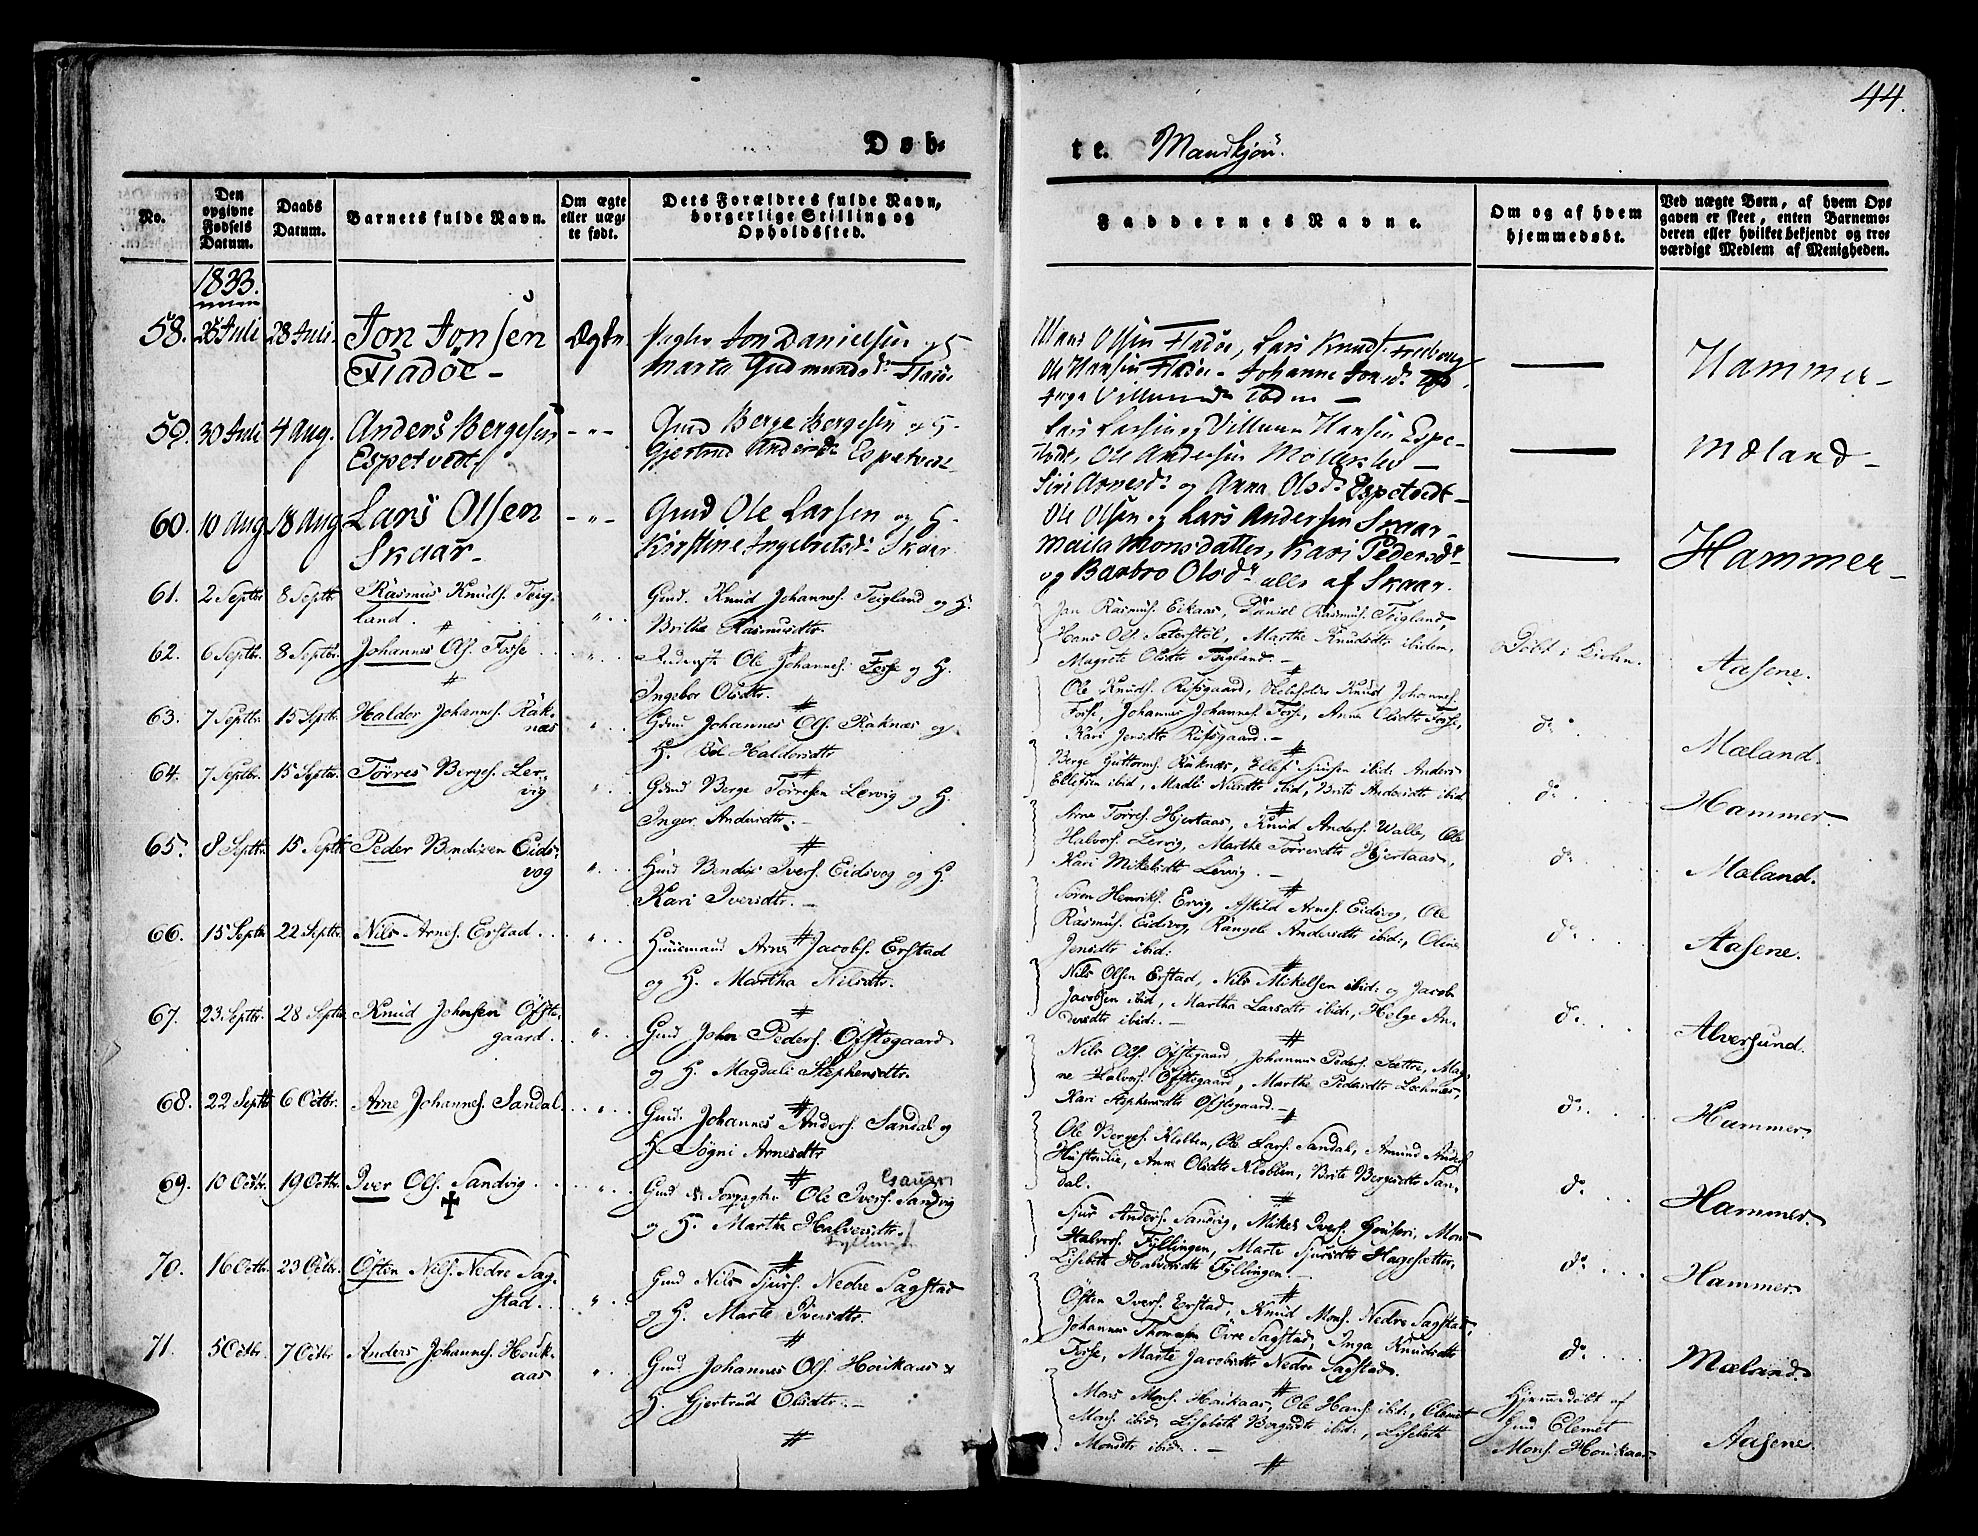 44.
Døb-
te. Mandkjön.
No.
Den opgivne Fødsels Datum.
Daabs Datum.
Barnets fulde Navn.
Om ægte eller uæg-
te født.
Dets Forældres fulde Navn,
borgerlige Stilling og
Opholdssted.
Faddernes Navne.
Om og af hvem
hjemmedøbt.
Ved uægte Børn, af hvem Op-
gaven er skeet, enten Barnemo-
deren eller hvilket bekjendt og tro-
værdigt Medlem af Menigheden.
1833.
58. 25 Juli 28 Juli. Jon Jonsen Ægte. Jon Danielsen og H
Fladöe - Marta Gudmundsdr Fladöe
Hans Olsen Fladöe, Lars Knuds.
Ole Hansen Fladöe - Johanne Jonsdr
— Hammer -
59. 30 Juli 4 Aug. Anders Bergesen - " - Gmd Berge Bergesen og H-
Espetvedt Gjertrud Andersdr Espetvedt
Lars Larsen og Villum Hansen Espe-
tvedt, Ole Andersen
Siri Arnesdr og Anna Olsdr Espetvedt -
— Mæland -
60. 10 Aug 18 Aug Lars Olsen - " - Gmd Ole Larsen og H-
Skaar - Kirstine Ingebretsdr Skaar
Ole Olsen og Lars Andersen Skaar -
Maila Monsdatter, Kari Pedersdr
og Barbro Olsdr alle af Skaar.
— Hammer -
61. 2 Septbr 8 Septbr Rasmus Knuds. Teig-
land. " Gmd. Knud Johannes. Teigland og H.
Brithe Rasmusdtr.
Jan Rasmus. Eikaas, Daniel Rasmus. Teigland,
Hans Ols. Sæterstøl, Marthe Knudsdtr ibidem,
Magrete Olsdtr Teigland. -
Döbt i Kirken. Aasene.
62. 6 Septbr. 8 Septbr. Johannes Ols. Fosse " Ole Johannes. Fosse og H.
Ingebor Olsdtr.
Ole Knuds. Risgaard, Knud Johannes.
Fosse, Johannes Johannes. Fosse, Anne Olsdtr Fosse,
Kari Jensdtr Risgaard. -
do Mæland.
63. 7 Septbr. 15 Septbr. Haldor Johannes. Rak-
næs " Gmd Johannes Ols. Raknæs og
H. Haldorsdtr
Berge Guttorms. Raknæs, Ellef Sjursen ibid: Anders
Ellefsen ibid, Madli Nilsdtr ibid, Brite Andersdtr ibid.
do Hammer.
64. 7 Septbr. 15 Septbr. Torres Berges. Ler-
vig " Gmd Berge Torresen Lervig og H.
Inger Andersdtr. -
Arne Torres. Hjertaas, Knud Anders. Walle, Ole
Halvors. Lervig, Marthe Torresdtr Hjertaas,
Kari Mikelsdtr Lervig. -
do Mæland.
65. 8 Septbr. 15 Septbr. Peder Bendixen Eids-
vog " Gmd Bendix Ivers. Eidsvog og H.
Kari Iversdtr. -
Søren Henriks. Ervig, Askild Arnes. Eidsvog, Ole
Rasmus. Eidsvog, Rangele Andersdtr ibid:, Oline
Jensdtr ibid:
do Aasene.
66. 15 Septbr 22 Septbr. Nils Arnes. Erstad " Huusmand Arne Jacobs. Erstad
og H. Martha Nilsdtr.
Nils Olsen Erstad, Nils Mikelsen ibid: og Jacob
Jacobsen ibid, Martha Larsdtr ibid:, Helge An-
dersdtr ibid: -
do Alversund.
67. 23 Septbr. 28 Septbr. Knud Johnsen Öfste-
gaard " Gmd John Peders. Öfstegaard
og H. Magdali Stephensdtr.
Nils Ols. Öfstegaard, Johannes Peders. Sættre, Mag-
ne Halvors. Öfstegaard, Marthe Pedersdtr
Kari Stephensdtr Öfstegaard. -
do Hammer.
68. 22 Septbr 6 Octbr. Arne Johannes. Sandal " Gmd. Johannes Anders. Sandal og
H. Sögni Arnesdtr
Ole Berges. Klobben, Ole Lars. Sandal, Amund Anders.
Anne Olsdtr Klobben, Brite Bergesdtr San-
dal.
do Hammer.
69. 10 Octbr. 19 Octbr. Iver Ols. Sandvig " Gmd Ole Ivers. Sandvig
og H. Marthe Halvorsdtr.
Fyllingen
Sjur Anders. Sandvig, Mikel Ivers. Mons
Halvors. Fyllingen, Marte Sjursdtr Hagesætter,
Lisebeth Halvorsdtr Fyllingen. -
do Hammer.
70. 16 Octbr. 23 Octbr. Östen Nils. Nedre Sag-
stad " Gmd Nils Sjurs. Nedre Sagstad
og H. Marte Iversdtr.
Östen Ivers. Erstad, Knud Mons. Nedre Sagstad,
Johannes Thomesen Övre Sagstad, Inga Knudsdtr
Fosse, Marte Jacobsdtr Nedre Sagstad.
do Mæland.
71. 5 Octbr. 7 Octbr Anders Johannes. Houk-
aas " Gmd Johannes Ols. Houkaas &
H. Gjertrud Olsdtr. -
Mons Mons. Houkaas, Ole Hans. ibid:, Clemet
Mons. ibid, Lisebeth ibid:, Lisebeth
Monsdtr ibid. -
Hjemmedöbt af
Gmd Clemet
Mons. Houkaas Aasene.